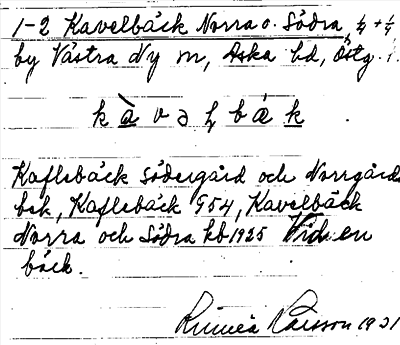 1-2 Kavelbäck Norra o. Södra, ¼ + ¼
by Västra Ny sn, Aska hd, Östg. l.
k à v ə ɫ b æ k
Kaflebäck Södergård och Norrgård
bsk, Kaflebäck G54, Kavelbäck
Norra och Södra kb 1925 Vid en
bäck.
Linnéa Larsson 1931